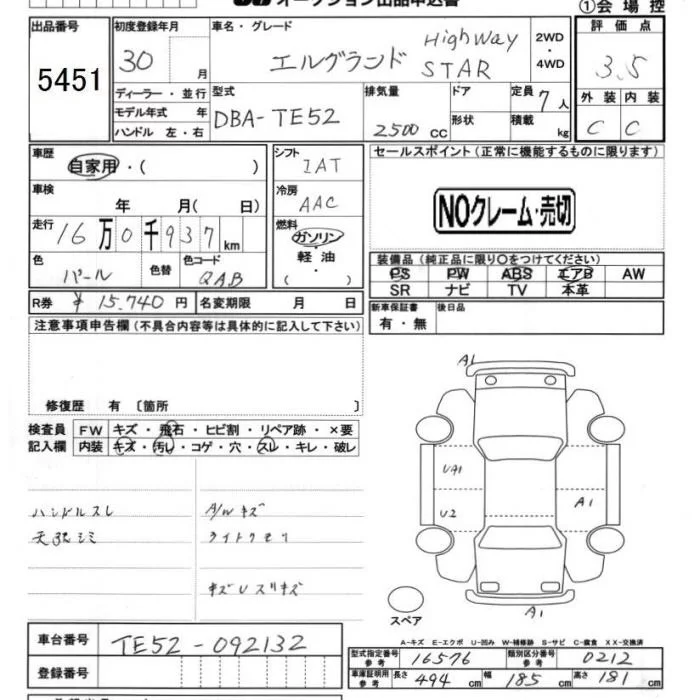 オークション出品申込書
①会場控
出品番号
5451
初度登録年月
30 月
車名・グレード
エルグランド Highway STAR
2WD
・
4WD
評価点
3.5
ディーラー・並行
モデル年式 年
ハンドル 左・右
型式
DBA-TE52
排気量
2500 CC
ドア
形状
定員 7 人
積載 kg
外装 内装
C C
車歴
自家用・( )
シフト
IAT
セールスポイント(正常に機能するものに限ります)
車検
年 月( 日)
冷房
AAC
NOクレーム・売切
走行 16万0千937km
燃料
ガソリン
・
軽油
・
( )
色
パール
色替
色コード
QAB
装備品(純正品に限り○をつけてください)
PS PW ABS エアB AW
SR ナビ TV 本革
R券 ¥15,740円 名変期限 月 日
新車保証書 後日品
有・無
注意事項申告欄(不具合内容等は具体的に記入して下さい)
修復歴 有 〔箇所 〕
検査員
記入欄
FW キズ・飛石・ヒビ割・リペア跡・×要
内装 キズ・汚れ・コゲ・穴・スレ・キレ・破レ
ハンドルスレ
天張シミ
A/Wキズ
ライトクモリ
キズUスリキズ
A1
UA1
U2
A1
A1
スペア
車台番号 TE52-092132
登録番号
A-キズ E-エクボ U-凹み W-補修跡 S-サビ C-腐食 XX-交換済
型式指定番号
参考
16576
類別区分番号
参考
0212
車庫証明用
参考
長さ 494 cm 幅 185 cm 高さ 181 cm